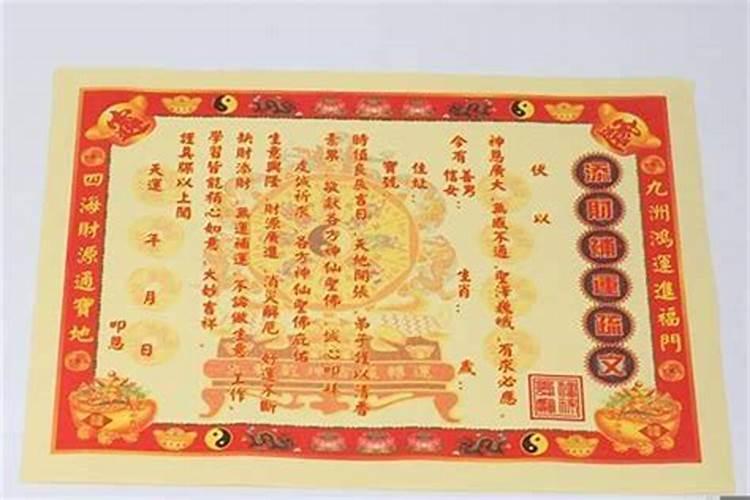 九洲鴻運進福門
添財補運疏文
伏以
神恩廣大 無感不通 聖澤巍峨 有求必應
今有善男信女： 生肖： 歲：
住址：
寶號
時值良辰吉日 天地開張 弟子謹以清香
素果 敬獻各方神仙聖佛 誠心叩拜
處誠祈求 各方神仙聖佛庇佑
生意興隆 財源廣進 消災解厄 好運不斷
缺財添財 無運補運 不論做生意、工作、
學習皆能稱心如意 大妙吉祥
謹具疏以上聞
天運 年 月 日
叩恩
四海財源通寶地